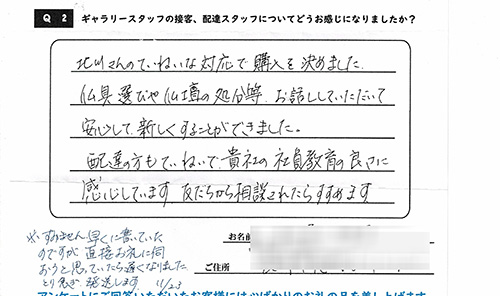 Q 2 ギャラリースタッフの接客、配達スタッフについてどうお感じになりましたか？
北川さんのていねいな対応で購入を決めました。
仏具選びや仏壇の処分等、お話ししていただいて
安心して新しくすることができました。
配達の方もていねいで、貴社の社員教育の良さに
感心しています。友だちから相談されたらすすめます
※すみません。早くに書いていた
のですが、直接お礼に伺
おうと思っていたら遅くなりました
とり急ぎ、郵送します 11/23
お名前
ご住所
アンケートにご回答いただいたお客様には心ばかりのお礼の品を差し上げます